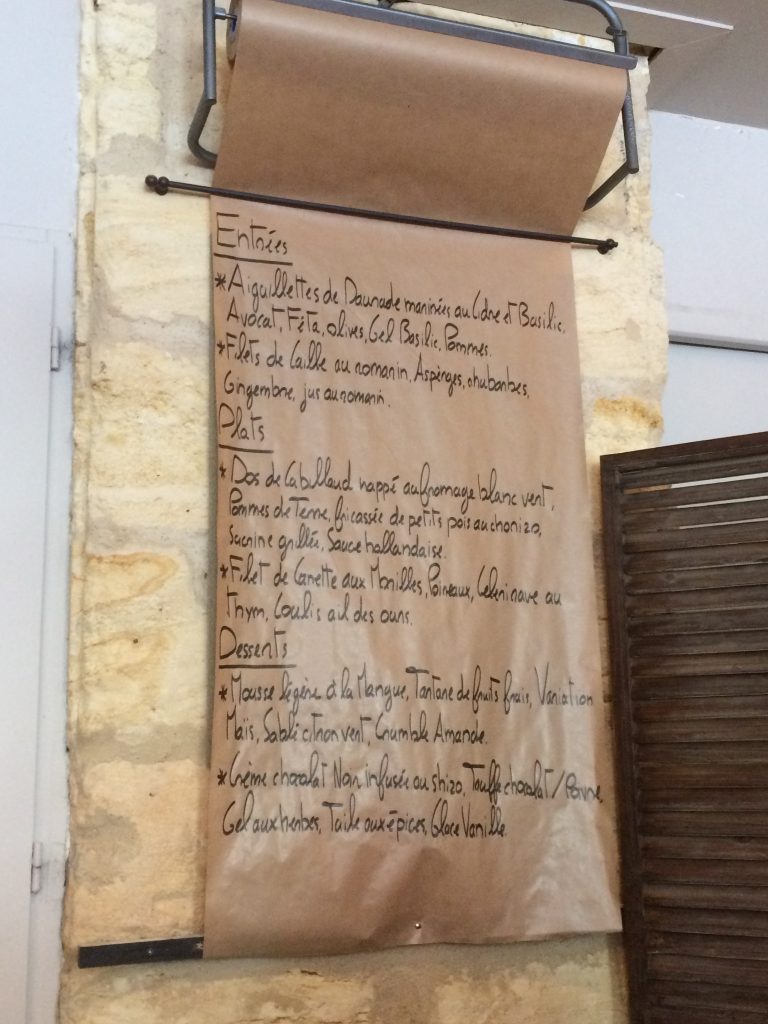 Entrées
*Aiguillettes de Daurade marinées au Cidre et Basilic,
Avocat, Féta, olives, Gel Basilic, Pommes.
*Filets de Caille au romarin, Aspèrges, rhubarbes,
Gingembre, jus au romarin.
Plats
*Dos de Cabillaud nappé au fromage blanc vert,
Pommes de Terre, fricassée de petits pois au chorizo,
Sucrine grillée, Sauce hollandaise.
*Filet de Canette aux Morilles, Poireaux, Céleri rave au
Thym, Coulis ail des ours.
Desserts
*Mousse légère à la Mangue, Tartare de fruits frais, Variation
Maïs, Sablé citron vert, Crumble Amande.
*Crème chocolat Noir infusée au shizo, Touffe chocolat/Poivre,
Gel aux herbes, Tuile aux épices, Glace Vanille.